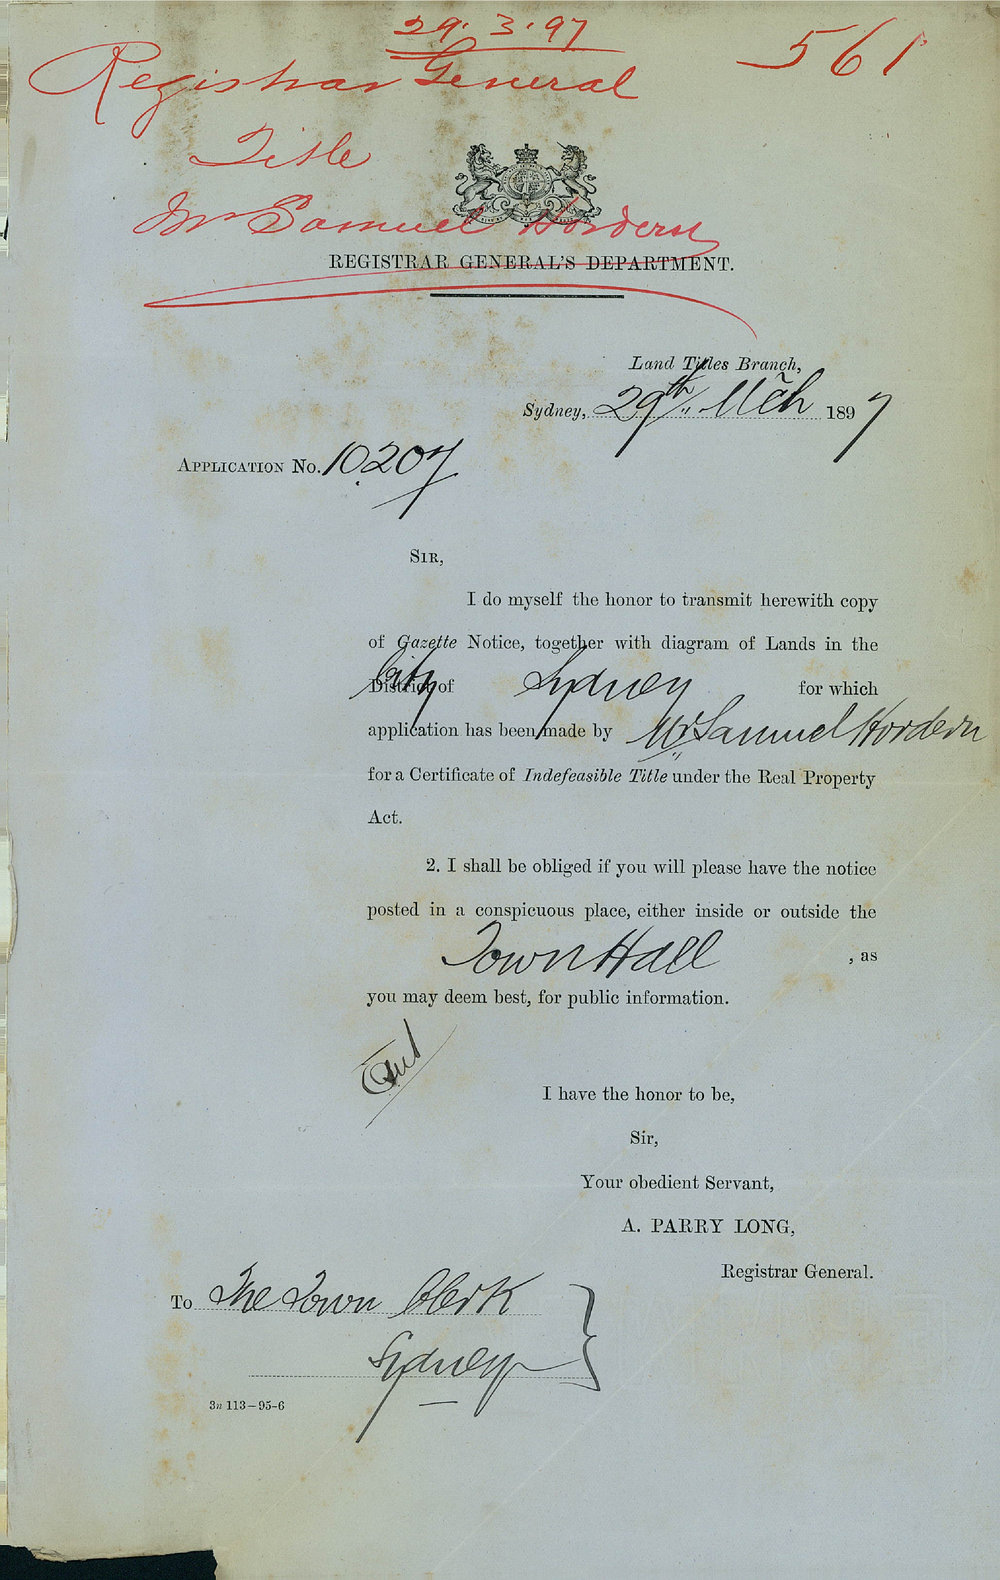 29.3.97
561
Registrar General
Title
Mr Samuel Hordern
REGISTRAR GENERAL'S DEPARTMENT.
Land Titles Branch,
Sydney, 29th March 1897
APPLICATION No. 10.207
SIR,
I do myself the honor to transmit herewith copy
of Gazette Notice, together with diagram of Lands in the
City District of Sydney for which
application has been made by Mr Samuel Hordern
for a Certificate of Indefeasible Title under the Real Property
Act.
2. I shall be obliged if you will please have the notice
posted in a conspicuous place, either inside or outside the
Town Hall, as
you may deem best, for public information.
I have the honor to be,
Sir,
Your obedient Servant,
A. PARRY LONG,
Registrar General.
To The Town Clerk
Sydney
3n 113-95-6